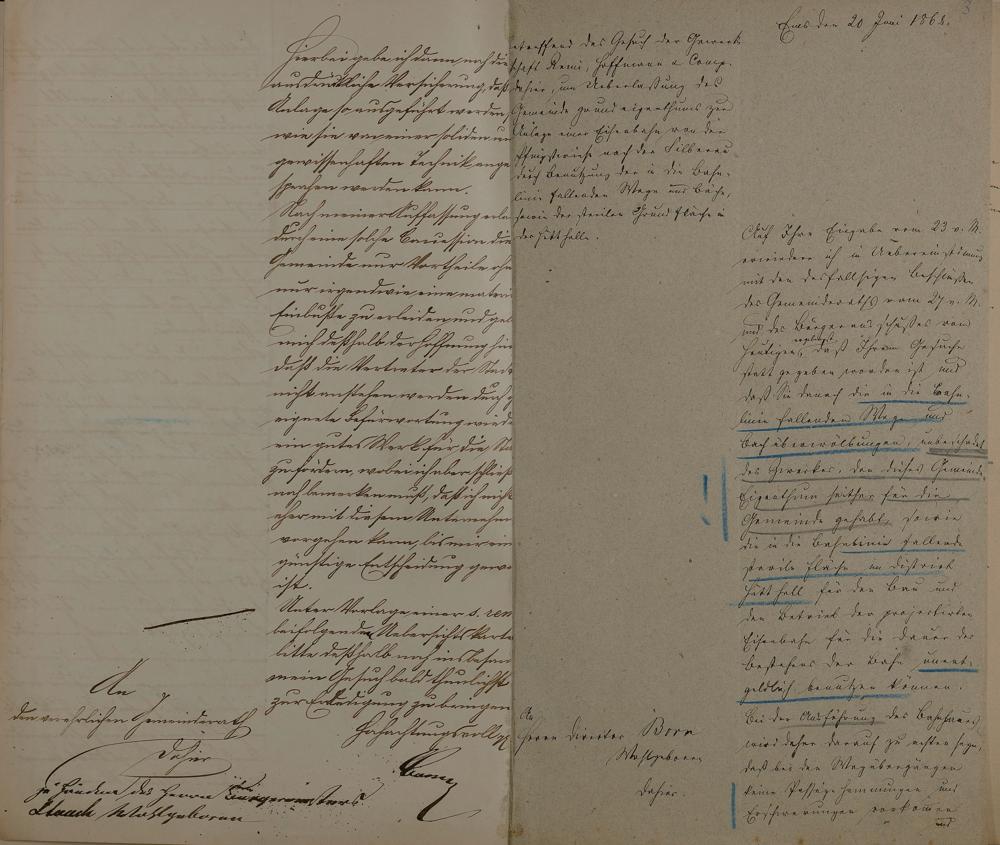 Hierbei gebe ich dann noch die
ausdrückliche Versicherung, daß
Anlage so ausgeführt werden
wie sie von einer soliden un
gewissenhaften Technik ange
sprochen werden kann.
Nach meiner Auffassung erla
durch eine solche Concession die
Gemeinde nur Vortheile oh
nur irgendwie eine materi
Einbuße zu erleiden und geb
mich deßhalb der Hoffnung hin
daß die Vertreter der Stad
nicht anstehen werden durch g
eignete Befürwortung wiede
ein gutes Werk für die St
zu fördern, wobei ich aber schließ
noch bemerken muß, daß ich nich
eher mit diesem Unternehm
vorgehen kann, bis mir ein
günstige Entscheidung gewo
ist.
Unter Vorlage einer s. rem
beifolgenden Uebersichtskarte
bitte deßhalb noch insbeson
mein Gesuch bald thunlichst
zur Erledigung zu bringen
Hochachtungsvoll
An
den verehrlichen Gemeinderath
Dahier
zu Händen des Herrn Bürgermeisters
Wohlgeboren
Ems den 20 Juni 1868.
etreffend des Gesuch der Gewerk
schaft Remi, Hoffmann & Comp.
dahier, um Ueberlassung des
Gemeindegrundeigenthums zur
Anlage einer Eisenbahn von der
Pfingstwiese nach der Silberau
durch Benutzung der in die Bahn-
linie fallenden Wege und Bäche,
sowie der sterilen Grundfläche in
der Hütthelle.
Auf Ihre Eingabe vom 23 v. M.
erwiedere ich in Uebereinstimmung
mit den desfallsigen Beschlüssen
des Gemeinderaths vom 27 v. M.
und des Bürgerausschußes vom
heutigen, daß Ihrem Gesuche
statt gegeben worden ist und
daß Sie danach die in die Bahn-
linie fallenden Wege und
Bachüberwölbungen, unbeschadet
des Zweckes, den dieses Gemeinde
Eigenthum seither für die
Gemeinde gehabt, sowie
die in die Bahnlinie fallende
sterile Fläche im District
für den Bau und
den Betrieb der projectirten
Eisenbahn für die Dauer des
Bestehens der Bahn unent-
geldlich benutzen können.
Bei der Ausführung des Bahnbaues
wird daher darauf zu achten sein,
daß bei den Wegübergängen
keine Passage Hemmungen und
Erschwerungen vorkommen
und
An
Herrn Director Born
Wohlgeboren
Dahier.